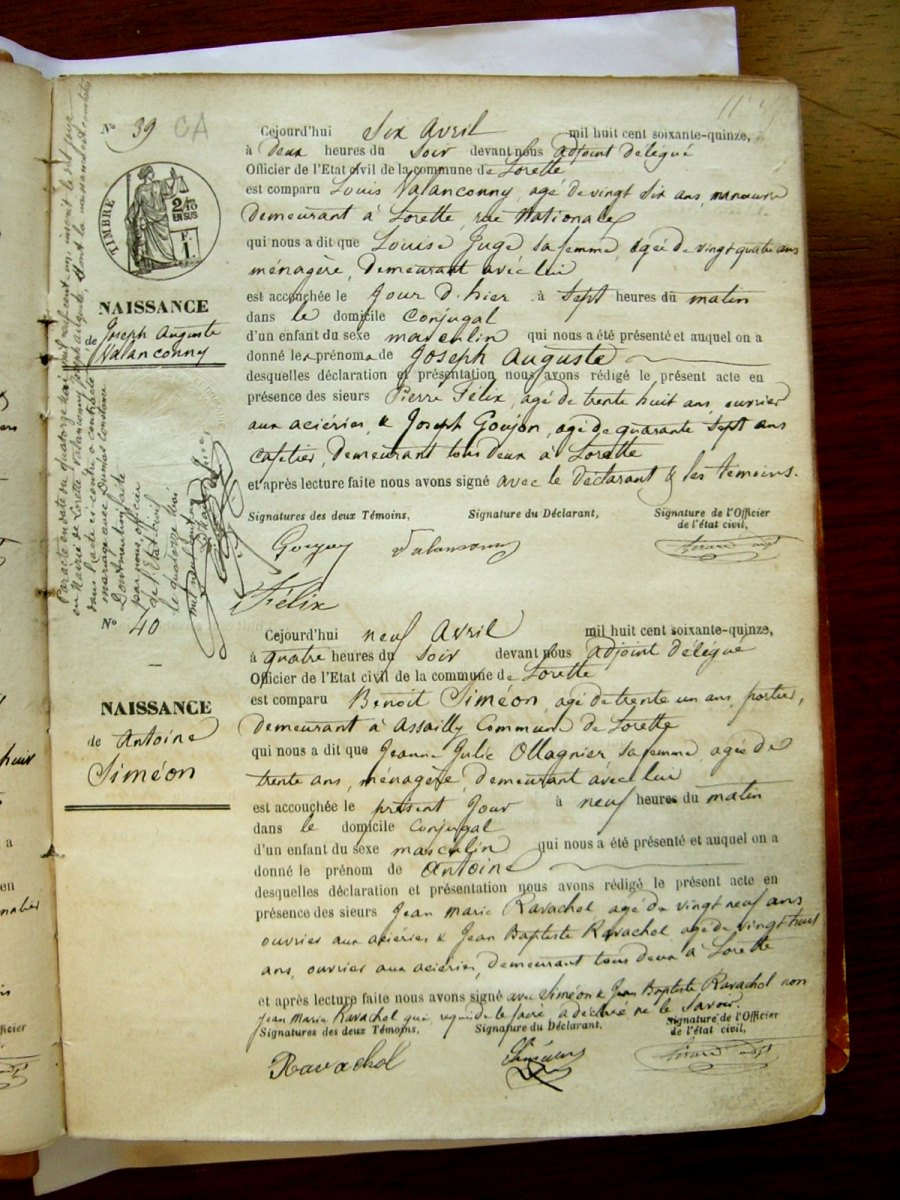 N° 39 CA
TIMBRE
2/10
EN SUS
F.
1.
NAISSANCE
de Joseph Auguste
Valanconny
Par acte en date du quatorze mai mil neuf cent un, inscrit le dit jour
en Mairie de Lorette Valanconny Joseph Auguste, dont la naissance est constatée
dans l'acte ci-contre a contracté
mariage avec Dumas Constance
Dont mention faite
par nous officier
de l'Etat civil
le quatorze mai
mil neuf cent un
Cejourd'hui six avril mil huit cent soixante-quinze,
à deux heures du soir devant nous adjoint délégué
Officier de l'Etat civil de la commune de Lorette
est comparu Louis Valanconny agé de vingt six ans, manœuvre
demeurant à Lorette, rue Nationale,
qui nous a dit que Louise Juge sa femme, agée de vingt quatre ans
ménagère, demeurant avec lui
est accouchée le jour d'hier à sept heures du matin
dans le domicile conjugal
d'un enfant du sexe masculin qui nous a été présenté et auquel on a
donné les prénoms de Joseph Auguste
desquelles déclaration et présentation nous avons rédigé le présent acte en
présence des sieurs Pierre Félix, agé de trente huit ans, ouvrier
aux aciéries, & Joseph Goujon, agé de quarante sept ans
cafetier, demeurant tous deux à Lorette
et après lecture faite nous avons signé avec le déclarant & les témoins.
Signatures des deux Témoins, Signature du Déclarant, Signature de l'Officier
de l'état civil,
Goujon Valanconny
Félix
N° 40
NAISSANCE
de Antoine
Siméon
Cejourd'hui neuf avril mil huit cent soixante-quinze,
à quatre heures du soir devant nous adjoint délégué
Officier de l'Etat civil de la commune de Lorette
est comparu Benoit Siméon, agé de trente un ans, portier,
demeurant à Assailly Commune de Lorette
qui nous a dit que Jeanne Julie Ollagnier sa femme, agée de
trente ans, ménagère, demeurant avec lui
est accouchée le présent jour à neuf heures du matin
dans le domicile conjugal
d'un enfant du sexe masculin qui nous a été présenté et auquel on a
donné le prénom de Antoine
desquelles déclaration et présentation nous avons rédigé le présent acte en
présence des sieurs Jean Marie Ravachol agé de vingt neuf ans
ouvrier aux aciéries & Jean Baptiste Ravachol agé de vingt huit
ans, ouvrier aux aciéries, demeurant tous deux à Lorette
et après lecture faite nous avons signé avec Siméon & Jean Baptiste Ravachol non
Jean Marie Ravachol qui requis de le faire a déclaré ne le savoir.
Signatures des deux Témoins, Signature du Déclarant, Signature de l'Officier
de l'état civil,
Ravachol Siméon